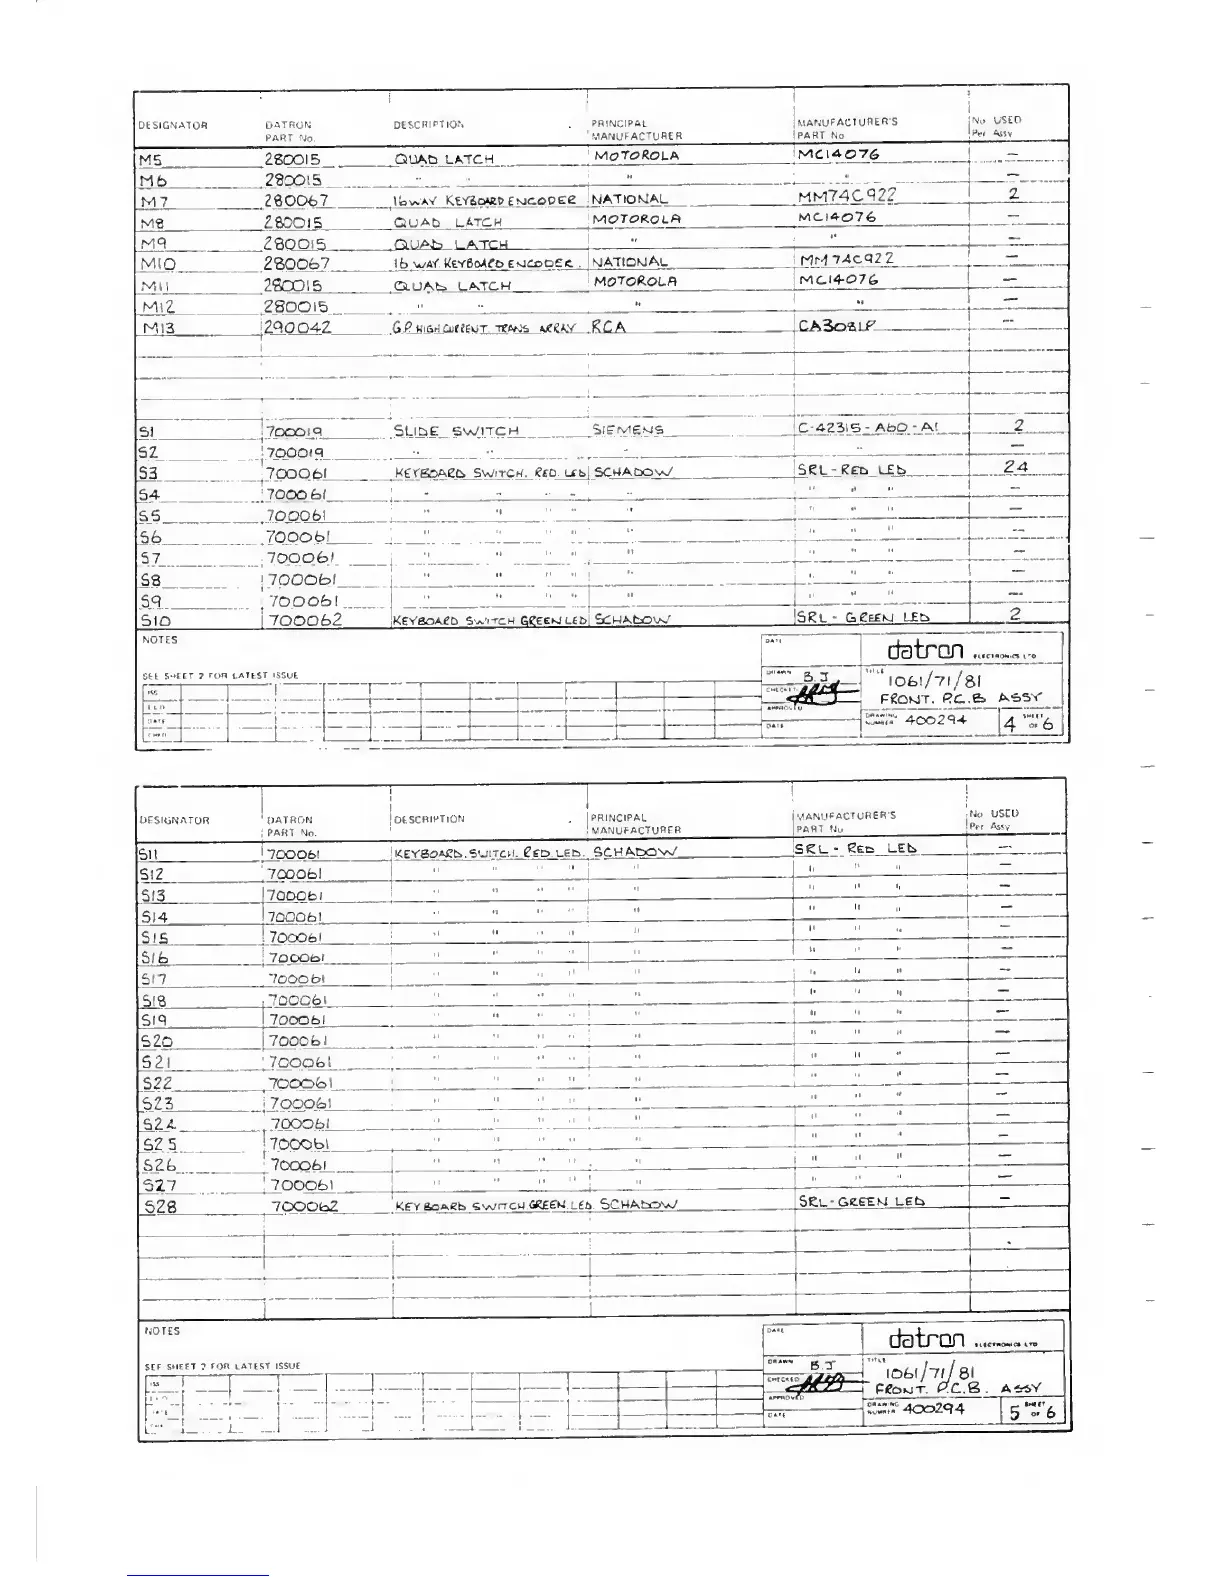 DESIGNATOR DATRON PART No. DESCRIPTION PRINCIPAL MANUFACTURER MANUFACTURER'S PART No No USED Per Assy
M5 280015 QUAD LATCH MOTOROLA MC14076 —
M6 280015 " " " " —
M7 280067 16 WAY KEYBOARD ENCODER NATIONAL MM74C922 2
M8 280015 QUAD LATCH MOTOROLA MC14076 —
M9 280015 QUAD LATCH " " —
M10 280067 16 WAY KEYBOARD ENCODER. NATIONAL MM74C922 —
M11 280015 QUAD LATCH MOTOROLA MC14076 —
M12 280015 " " " " —
M13 290042 G.P. HIGH CURRENT TRANS ARRAY RCA CA3081P —
S1 700019 SLIDE SWITCH SIEMENS C-42315-A60-A1 2
S2 700019 " " " " —
S3 700061 KEYBOARD SWITCH. RED. LED SCHADOW SRL-RED LED 24
S4 700061 " " " " " " —
S5 700061 " " " " " " " " —
S6 700061 " " " " " " " " —
S7 700061 " " " " " " " " —
S8 700061 " " " " " " " " —
S9 700061 " " " " " " " " —
S10 700062 KEYBOARD SWITCH GREEN LED SCHADOW SRL- GREEN LED 2
NOTES
SEE SHEET 2 FOR LATEST ISSUE
ISS
DATE
DATE
DRAWN B.J
CHECKED
APPROVED
DATE
datron ELECTRONICS LTD
TITLE
1061/71/81
FRONT. P.C.B ASSY
DRAWING NUMBER 400294 4 SHEET OF 6
DESIGNATOR DATRON PART No. DESCRIPTION PRINCIPAL MANUFACTURER MANUFACTURER'S PART No No USED Per Assy
S11 700061 KEYBOARD. SWITCH. RED LED. SCHADOW SRL- RED LED —
S12 700061 " " " " " " " " —
S13 700061 " " " " " " " " —
S14 700061 " " " " " " " " —
S15 700061 " " " " " " " " —
S16 700061 " " " " " " " " —
S17 700061 " " " " " " " " —
S18 700061 " " " " " " " " —
S19 700061 " " " " " " " " —
S20 700061 " " " " " " " " —
S21 700061 " " " " " " " " —
S22 700061 " " " " " " " " —
S23 700061 " " " " " " " " —
S24 700061 " " " " " " " " —
S25 700061 " " " " " " " " —
S26 700061 " " " " " " " " —
S27 700061 " " " " " " " " —
S28 700062 KEYBOARD SWITCH GREEN LED SCHADOW SRL-GREEN LED —
NOTES
SEE SHEET 2 FOR LATEST ISSUE
ISS
DATE
DATE
DRAWN B.J
CHECKED
APPROVED
DATE
datron ELECTRONICS LTD
TITLE
1061/71/81
FRONT. P.C.B. ASSY
DRAWING NUMBER 400294 5 SHEET OF 6